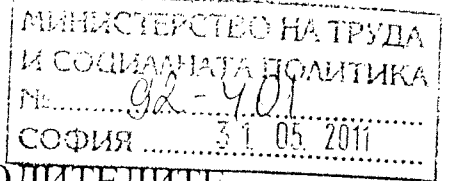 МИНИСТЕРСТВО НА ТРУДА
И СОЦИАЛНАТА ПОЛИТИКА
№ 92-401
СОФИЯ 31. 05. 2011
ОДИТЕЛИТЕ